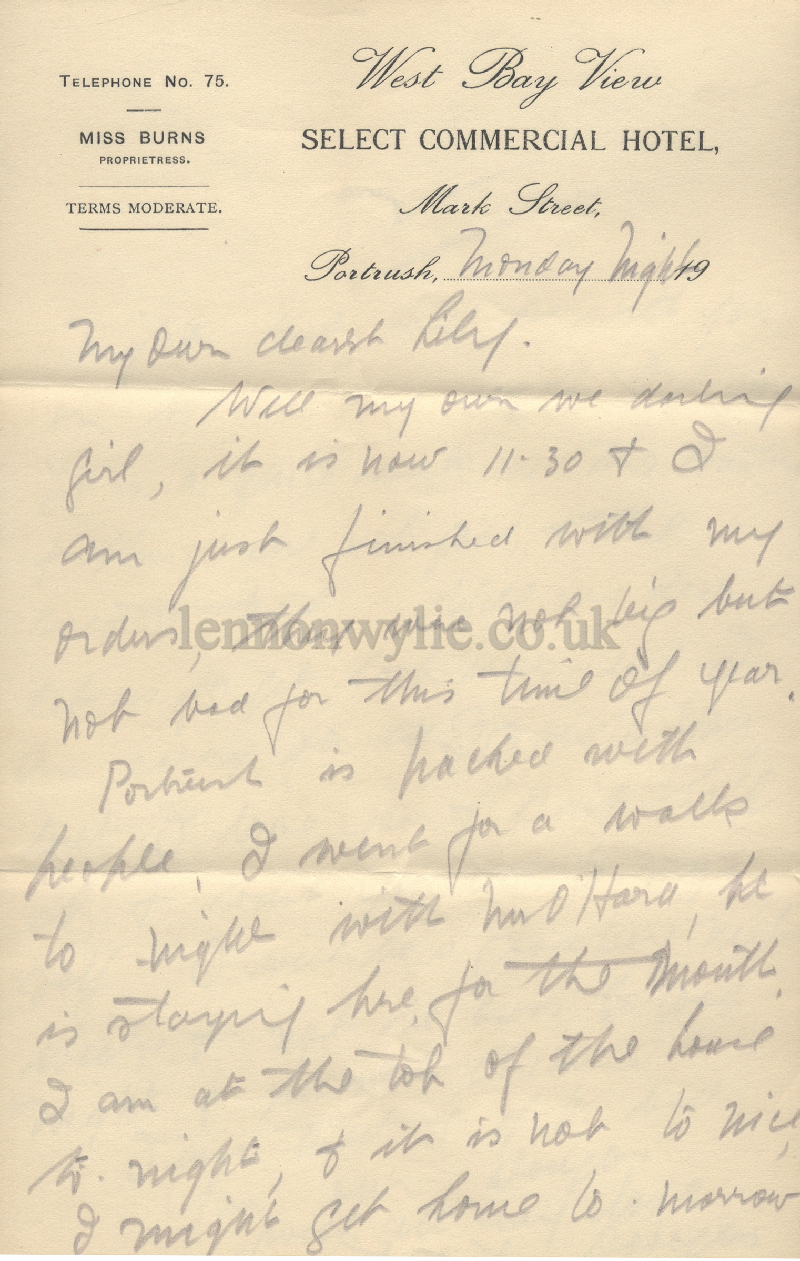 TELEPHONE NO. 75.
MISS BURNS
PROPRIETRESS.
TERMS MODERATE.
West Bay View
SELECT COMMERCIAL HOTEL,
Mark Street,
Portrush, Monday Night 19
My own dearest Lily.
Well my own wee darling
girl, it is now 11.30 & I
am just finished with my
orders, they were not big but
not bad for this time of year.
Portrush is packed with
people, I went for a walk
to night with Mr O'Hara, he
is staying here, for the month.
I am at the top of the house
to. night, & it is not to nice,
I might get home to. morrow
lennonwylie.co.uk